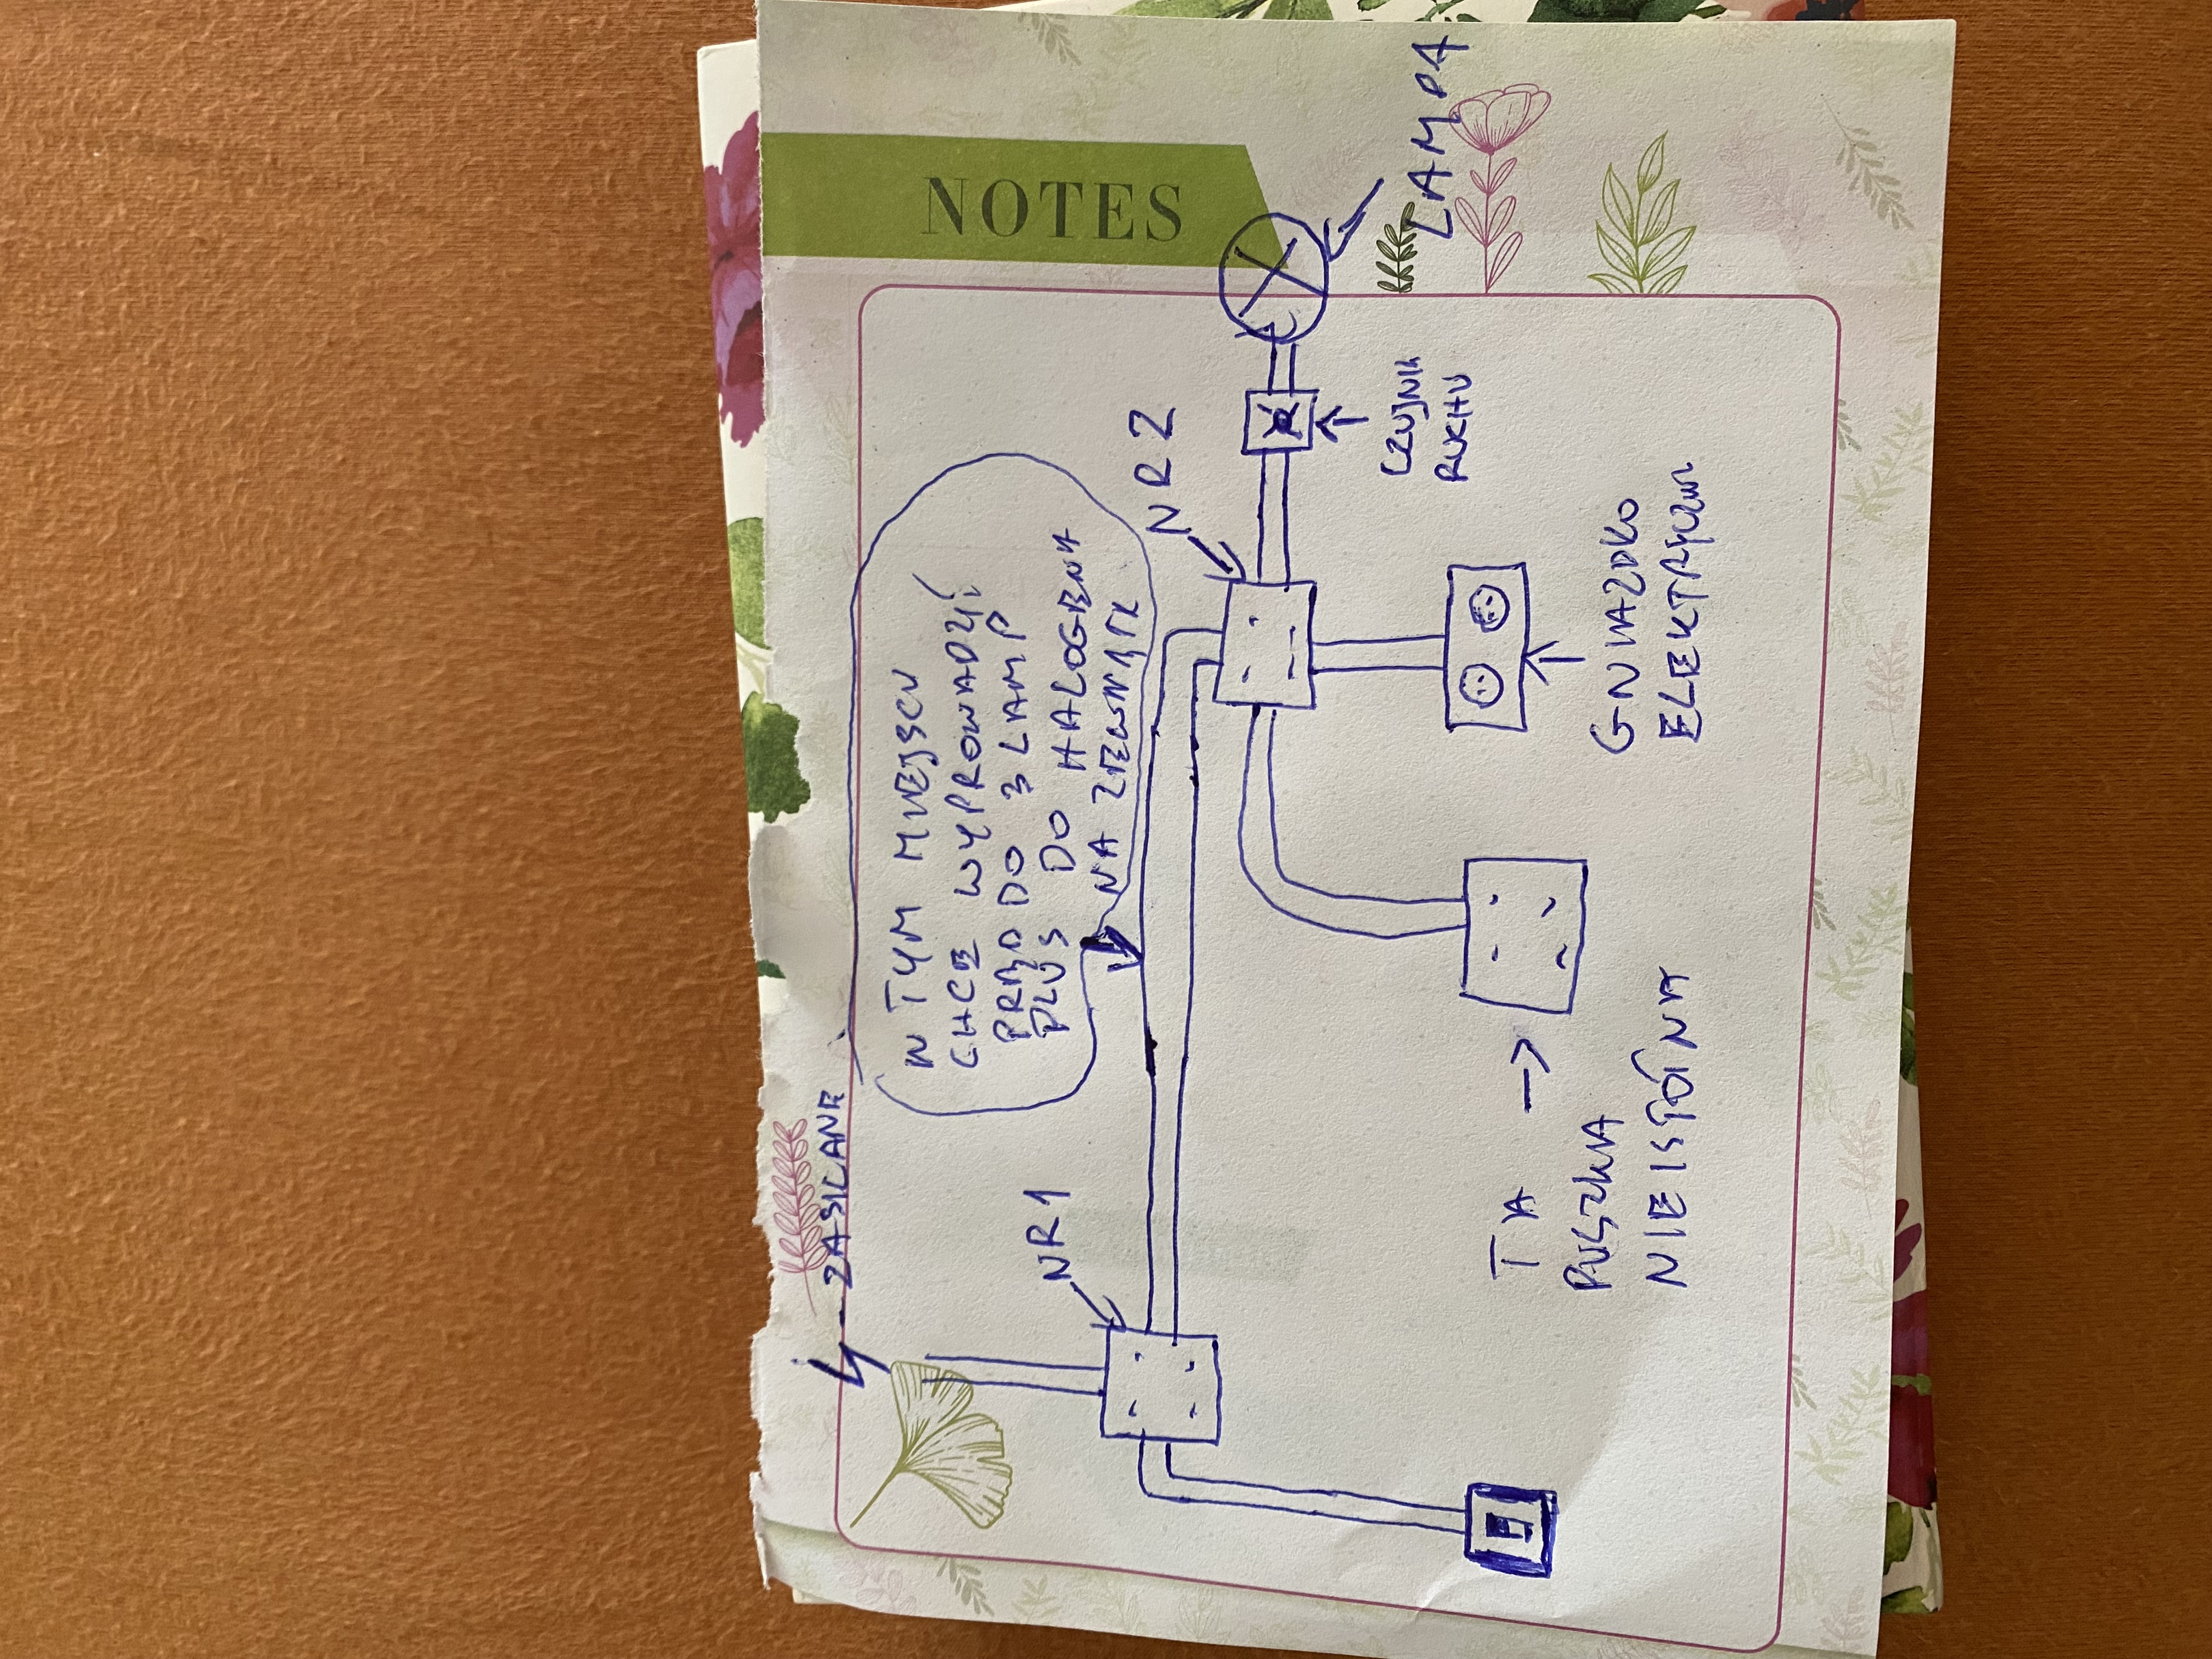 NOTES
ZASILANIE
W TYM MIEJSCU
CHCE WYPROWADZIĆ
PRĄD DO 3 LAMP
PLUS DO HALOGENA
NA ZEWNĄTR
NR1
NR2
LAMPA
CZUJNIK
RUCHU
GNIAZDKO
ELEKTRYCZN
TA →
PUSZKA
NIEISTÓTNA